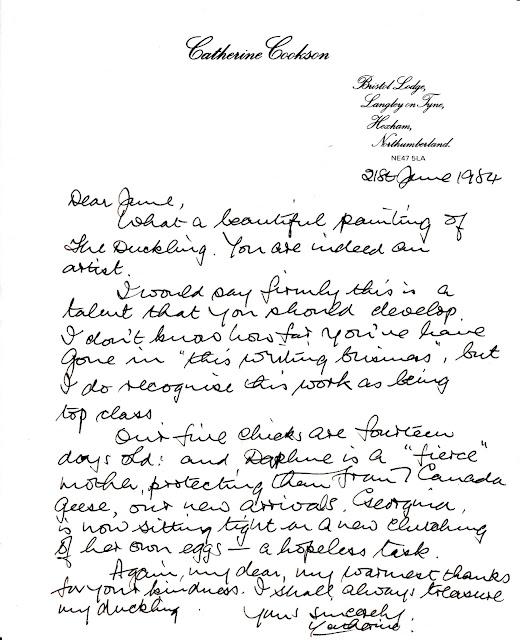 Catherine Cookson
Bristol Lodge,
Langley on Tyne,
Hexham,
Northumberland.
NE47 5LA
21st June 1984
Dear June,
What a beautiful painting of
The Duckling. You are indeed an
artist.
I would say firmly this is a
talent that you should develop.
I don't know how far you've have
gone in "this writing business", but
I do recognise this work as being
top class
Our five chicks are fourteen
days old: and Daphne is a "fierce"
mother, protecting them from 7 Canada
geese, our new arrivals. Georgina,
is now sitting tight on a new clutching
of her own eggs — a hopeless task.
Again, my dear, my warmest thanks
for your kindness. I shall always treasure
my duckling.
Yours sincerely,
Catherine.